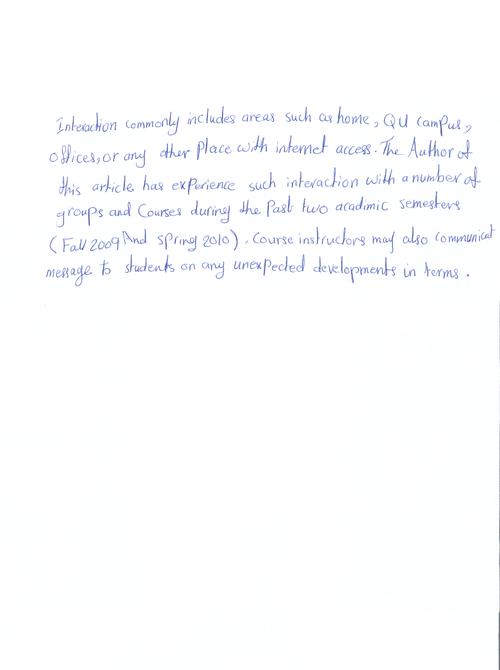 Interaction commonly includes areas such as home, QU campus,
offices, or any other Place with internet access. The Author of
this article has experience such interaction with a number of
groups and Courses during the Past two acadimic semesters
(Fall 2009 And spring 2010). Course instructors may also communicat
message to students on any unexpected developments in terms.